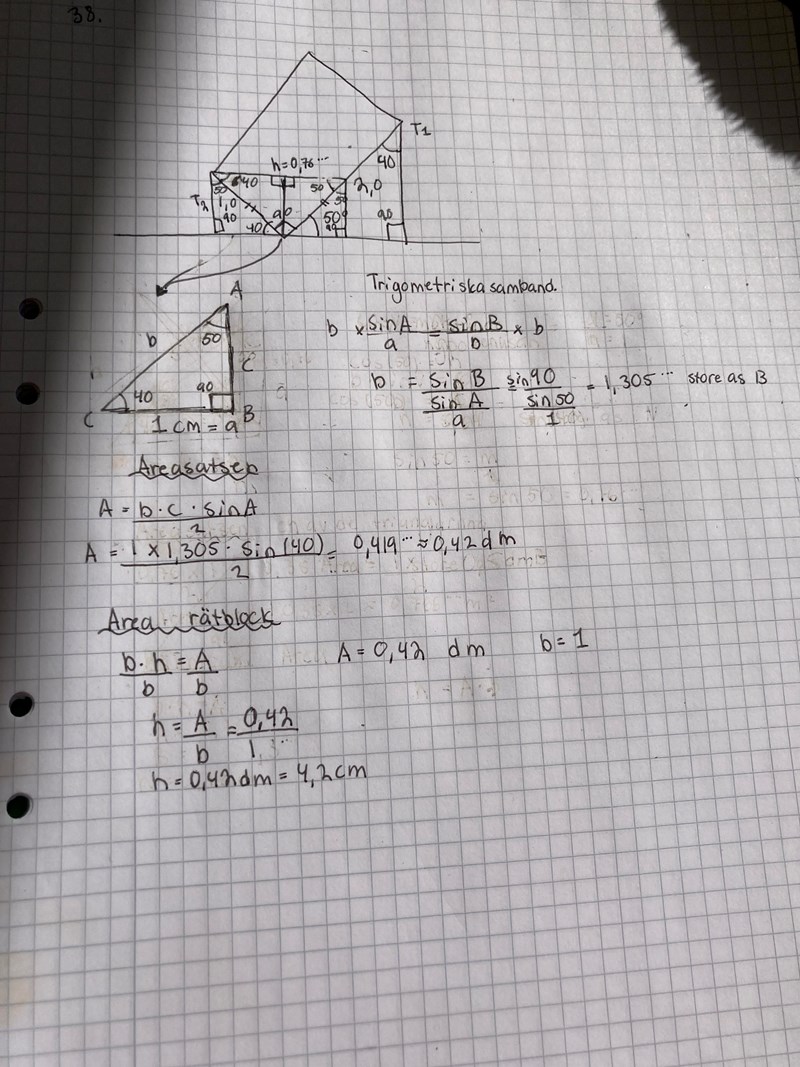 38.
T1
h=0,76...
40
40
50
50
2,0
50
T2
1,0
90
40
90
50
90
90
A
Trigometriska samband.
b × sinA/a = sinB/b × b
b
50
C
b = sinB/(sinA/a) = sin90/(sin50/1) = 1,305... store as B
40
90
C
B
1 cm = a
Areasatsen
A = b·c·sinA/2
A = 1×1,305·sin(40)/2 = 0,419... ≈ 0,42dm
Area rätblock
b·h/b = A/b A = 0,42 dm b = 1
h = A/b = 0,42/1
h = 0,42dm = 4,2cm